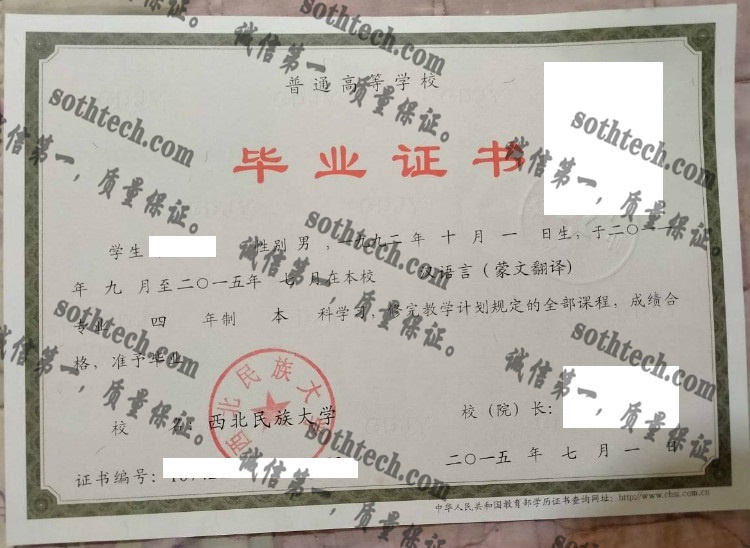 普通高等学校
毕业证书
学生 性别 男 ，一九九二 年 十 月 一 日生，于二〇一一
年 九 月至二〇一五年 七 月在本校 汉语言（蒙文翻译）
专业 四 年制 本 科学习，修完教学计划规定的全部课程，成绩合
格，准予毕业
西北民族大学
校 名：西北民族大学 校（院）长：
二〇一五 年 七 月 一 日
证书编号：
中华人民共和国教育部学历证书查询网址：http://www.chsi.com.cn
sothtech.com
诚信第一，质量保证。
sothtech.com
诚信第一，质量保证。
sothtech.com
诚信第一，质量保证。
sothtech.com
诚信第一，质量保证。
sothtech.com
诚信第一，质量保证。
sothtech.com
诚信第一，质量保证。
sothtech.com
诚信第一，质量保证。
sothtech.com
诚信第一，质量保证。
sothtech.com
诚信第一，质量保证。